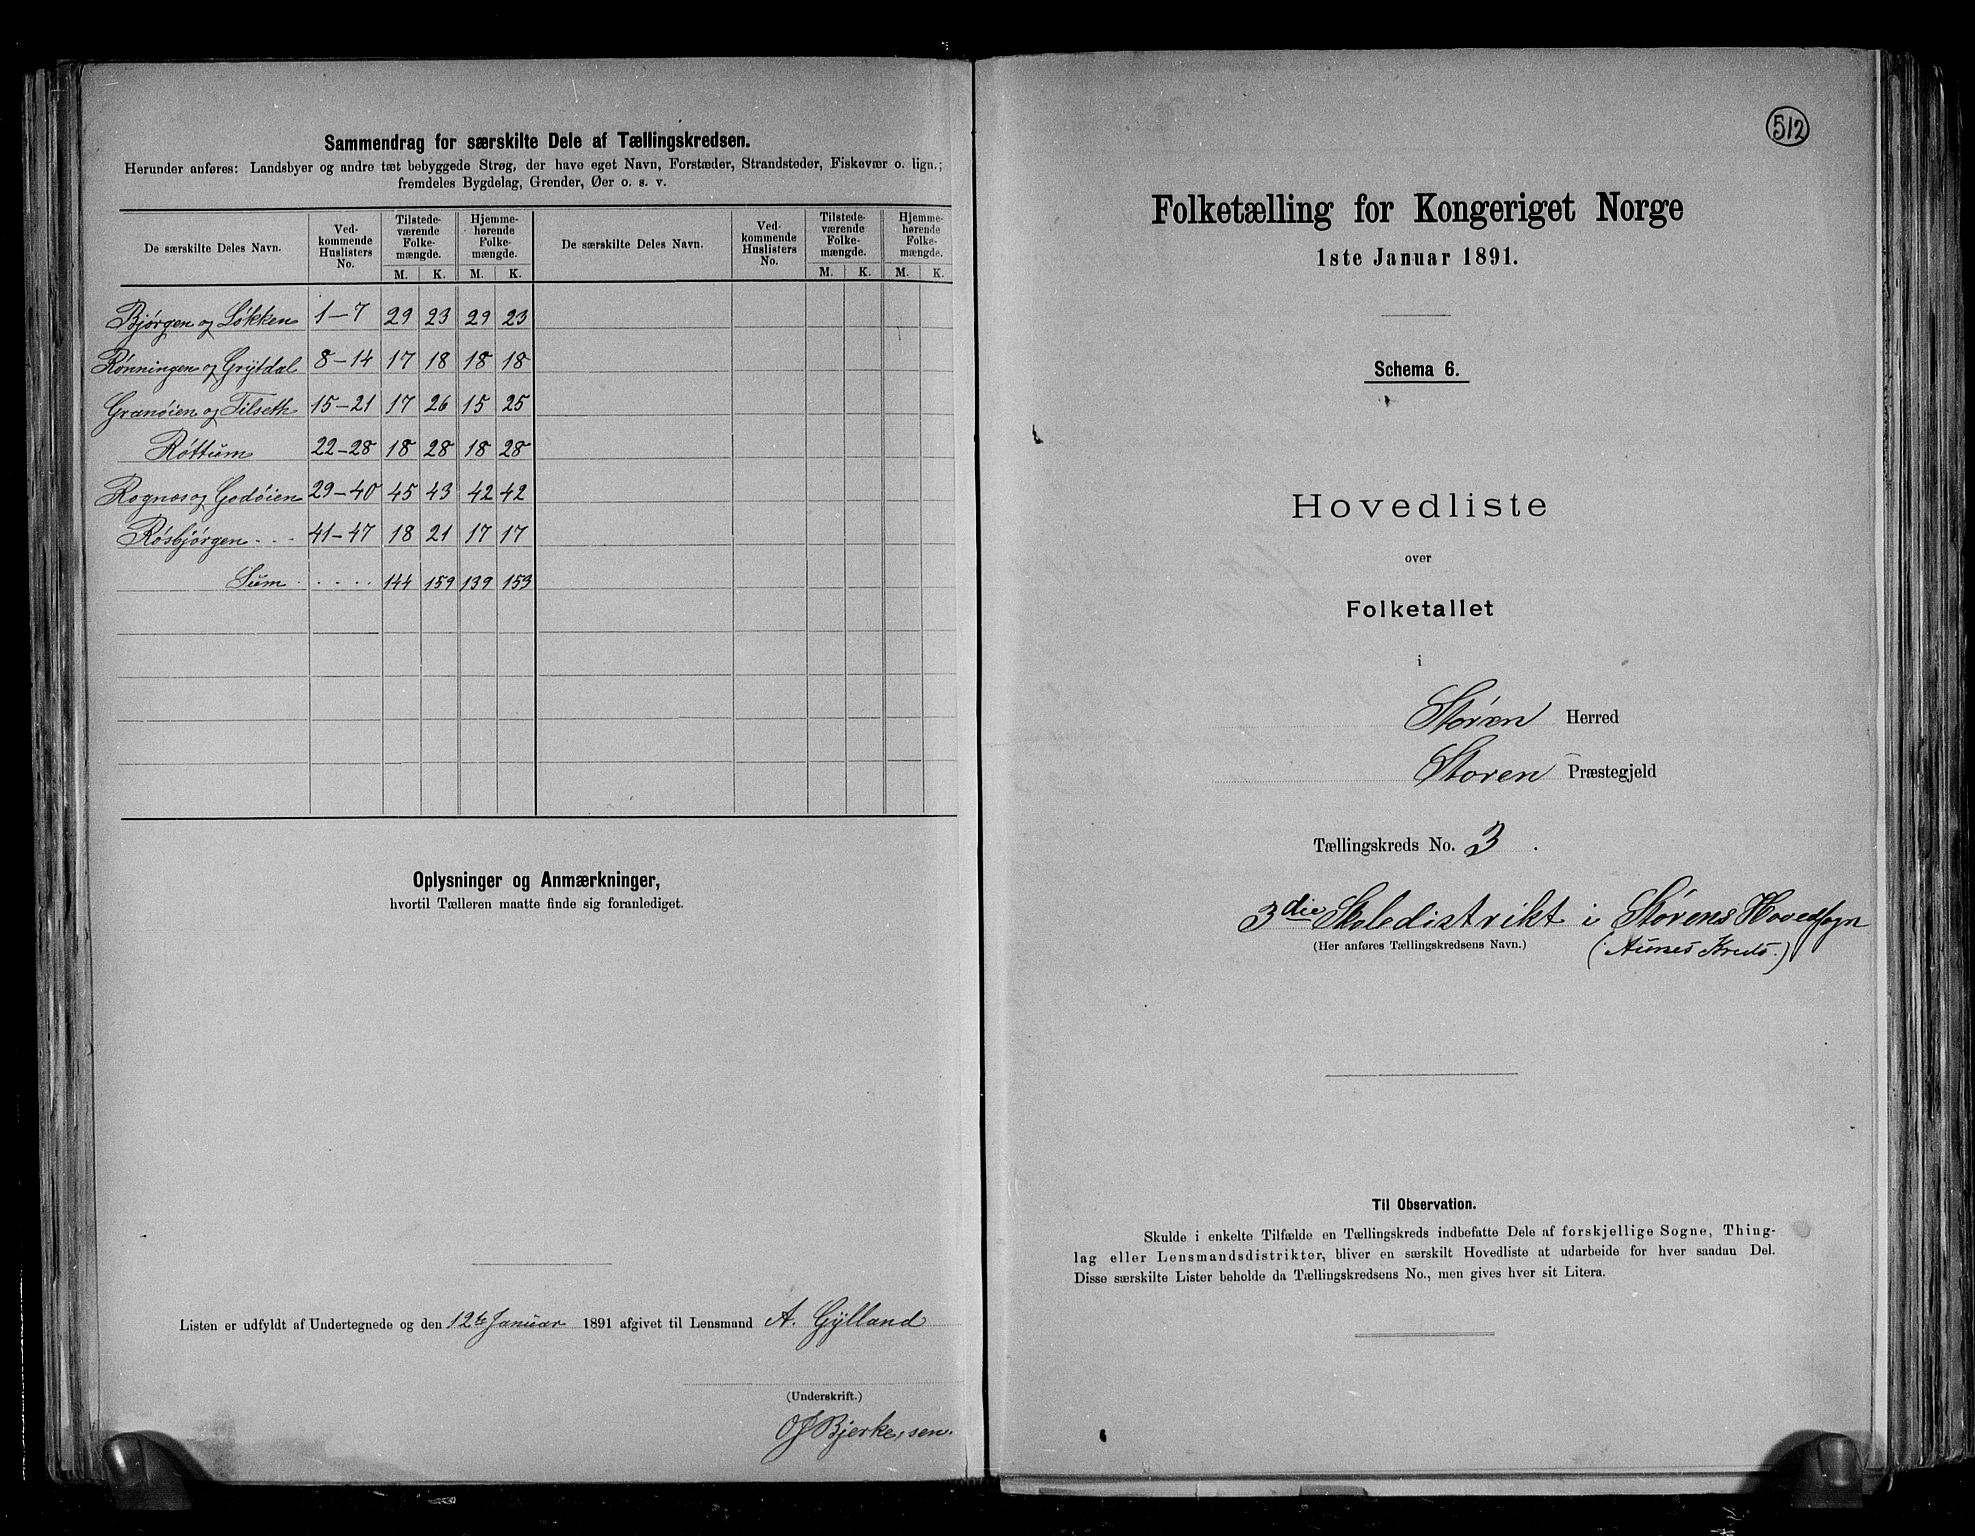 Sammendrag for særskilte Dele af Tællingskredsen.
Herunder anføres: Landsbyer og andre tæt bebyggede Strøg, der have eget Navn, Forstæder, Strandsteder, Fiskevær o. lign.;
fremdeles Bygdelag, Grender, Øer o. s. v.
De særskilte Deles Navn. Ved-kommende Huslisters No. Tilstede-værende Folke-mængde. M. K. Hjemme-hørende Folke-mængde. M. K. De særskilte Deles Navn. Ved-kommende Huslisters No. Tilstede-værende Folke-mængde. M. K. Hjemme-hørende Folke-mængde. M. K.
Bjørgen og Løkken 1-7 29 23 29 23
Rønningen og Grytdal 8-14 17 18 18 18
Granøien og Tilseth 15-21 17 26 15 25
Røttum 22-28 18 28 18 28
Rognæs og Godøien 29-40 45 43 42 42
Røsbjørgen . . . 41-47 18 21 17 17
Sum . . . . . 144 159 139 153
Oplysninger og Anmærkninger,
hvortil Tælleren maatte finde sig foranlediget.
Listen er udfyldt af Undertegnede og den 12te Januar 1891 afgivet til Lensmand A. Gylland
(Underskrift.)
512
Folketælling for Kongeriget Norge
1ste Januar 1891.
Schema 6.
Hovedliste
over
Folketallet
i
Støren Herred
Støren Præstegjeld
Tællingskreds No. 3.
3die Skoledistrikt i Størens Hovedsogn
(Her anføres Tællingskredsens Navn.)
(Aunes Kreds.)
Til Observation.
Skulde i enkelte Tilfælde en Tællingskreds indbefatte Dele af forskjellige Sogne, Thing-
lag eller Lensmandsdistrikter, bliver en særskilt Hovedliste at udarbeide for hver saadan Del.
Disse særskilte Lister beholde da Tællingskredsens No., men gives hver sit Litera.